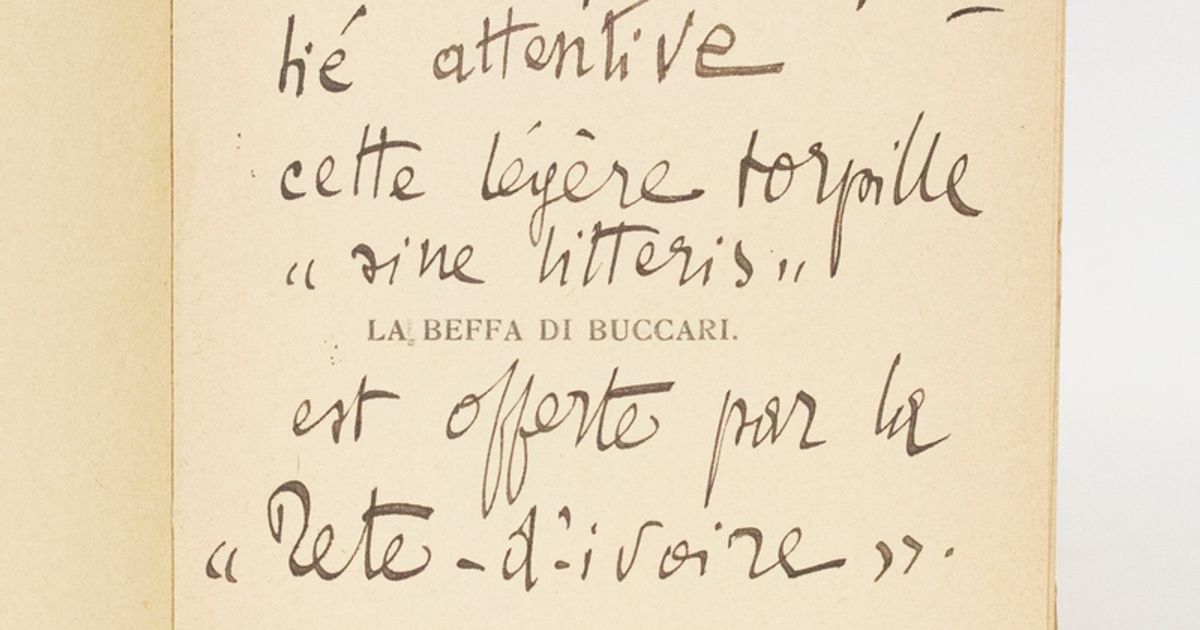 tié attentive
cette légère torpille
« sine litteris »
LA BEFFA DI BUCCARI.
est offerte par la
« Tete-d'ivoire ».